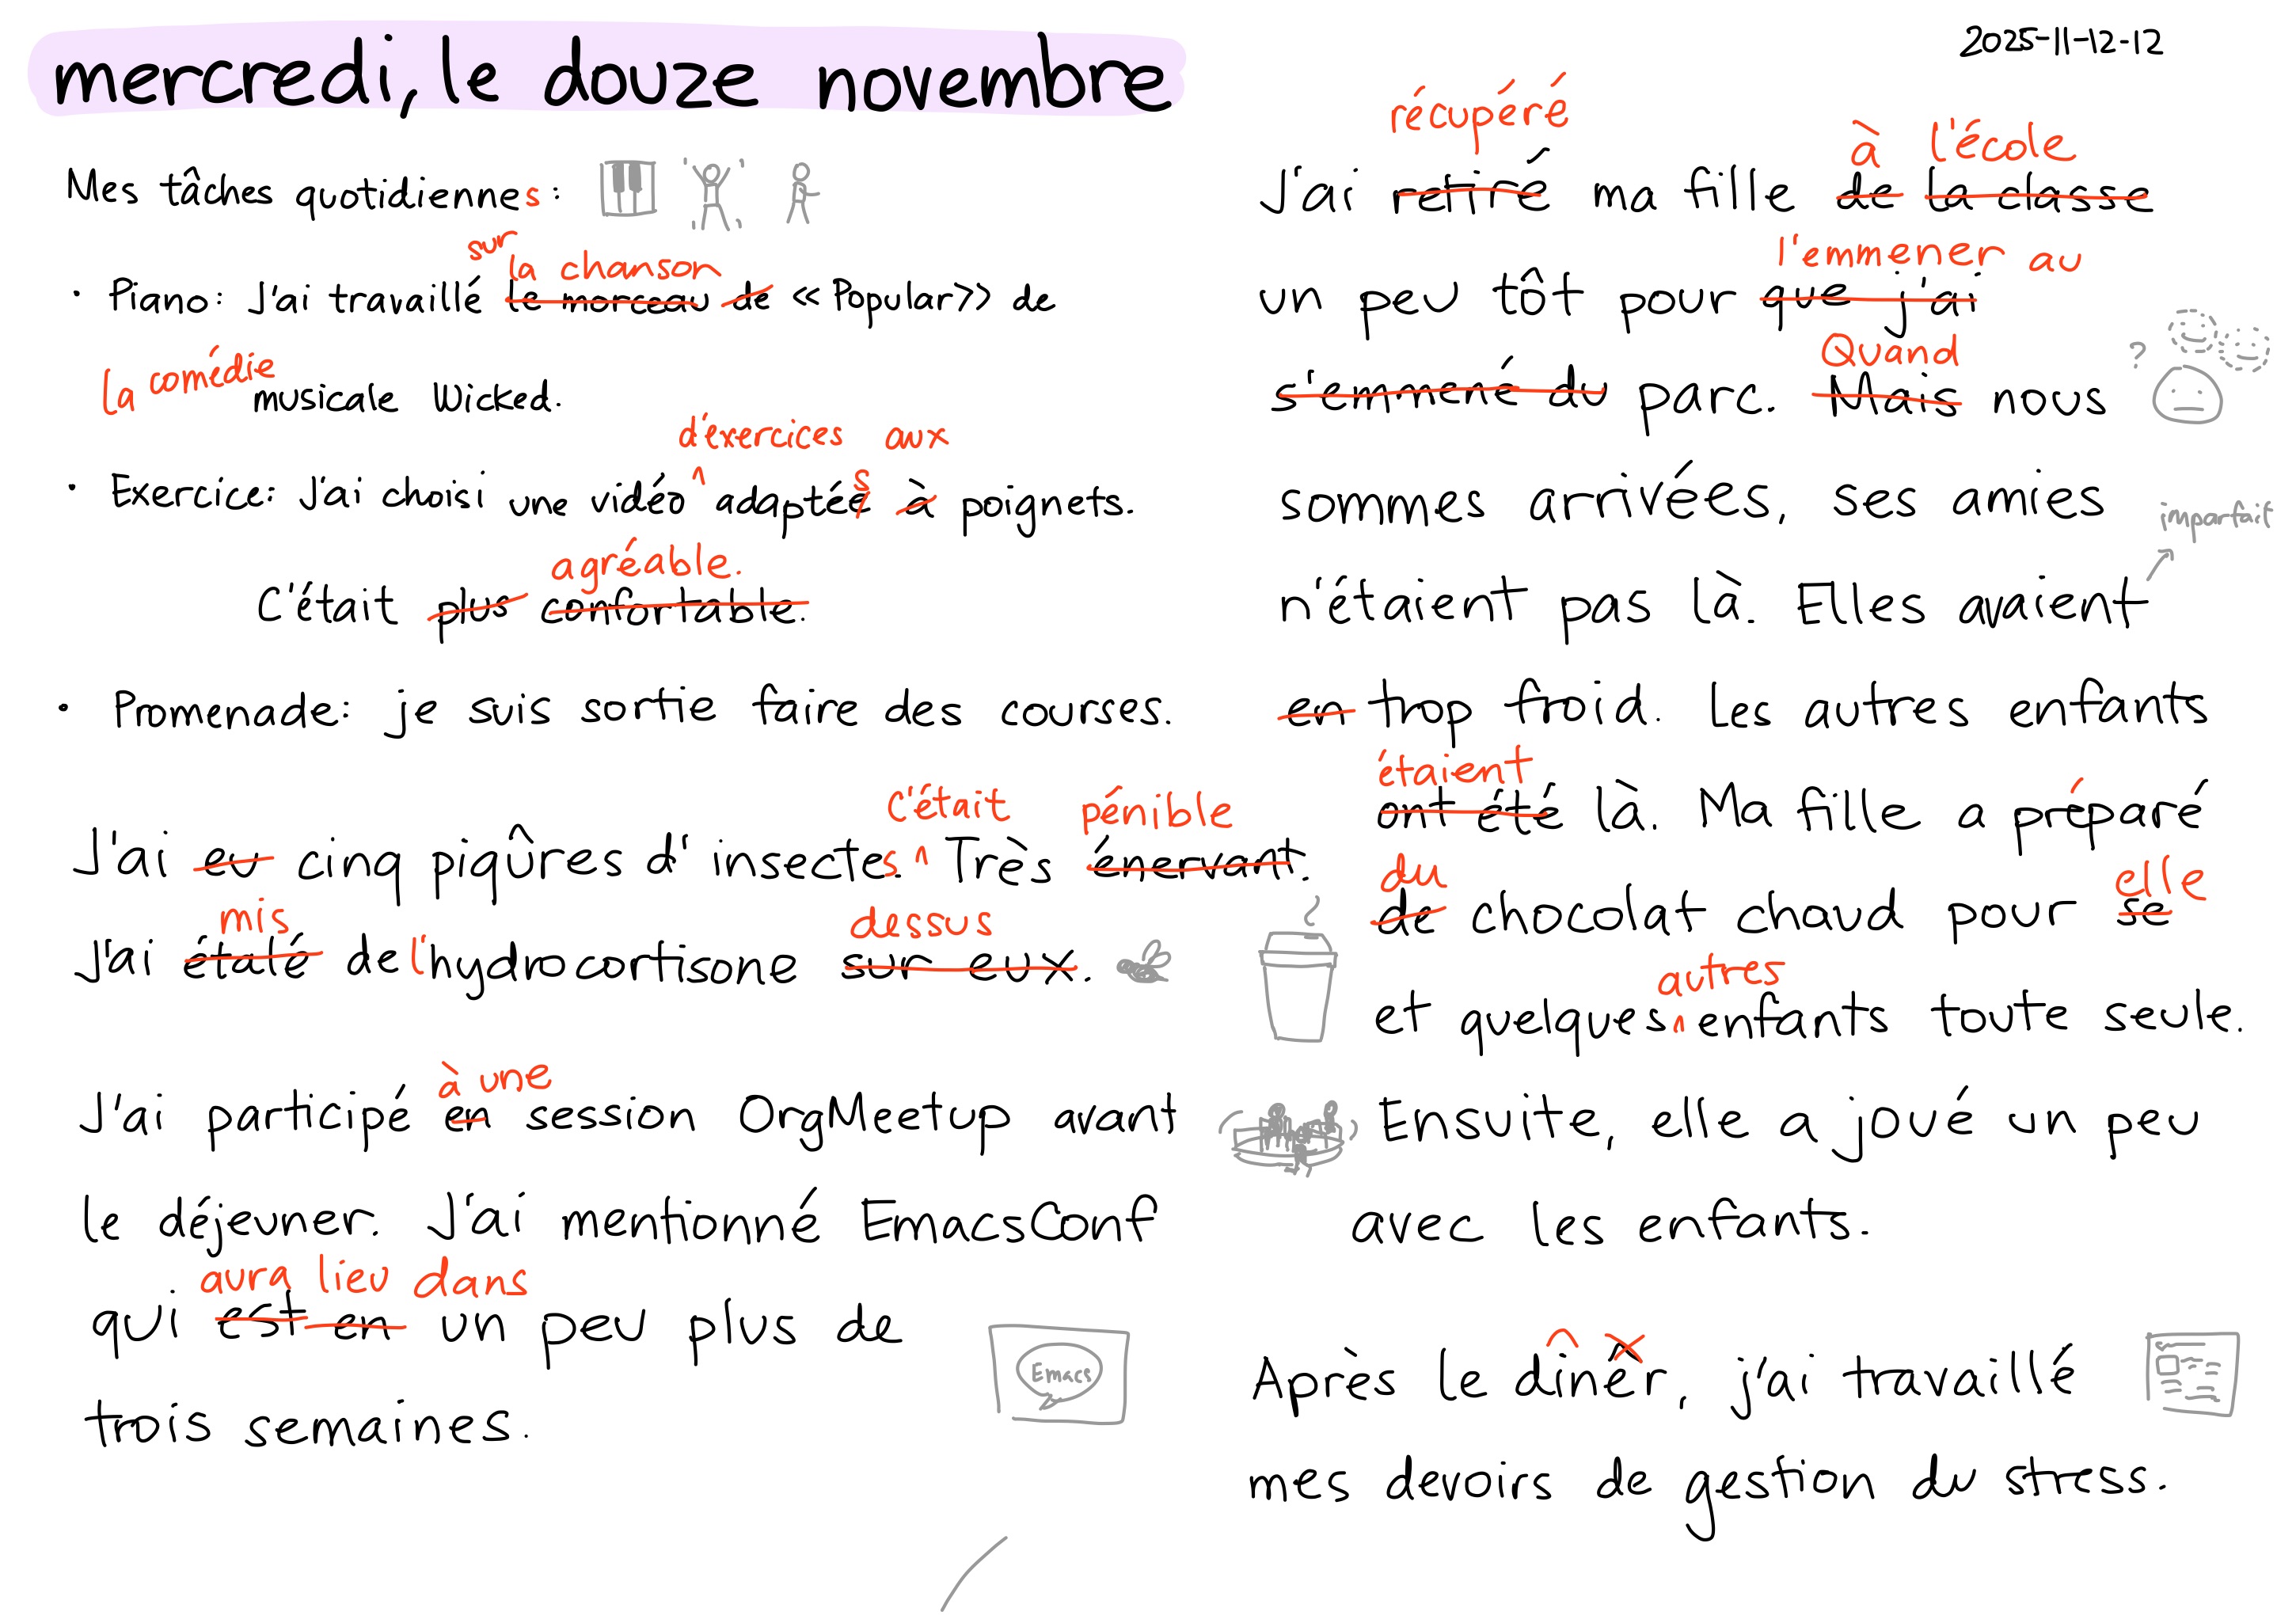 mercredi, le douze novembre
2025-11-12-12
Mes tâches quotidiennes :
sur la chanson
• Piano: J'ai travaillé le morceau de << Popular>> de
la comédie
musicale Wicked.
d'exercices aux
• Exercice: J'ai choisi une vidéo ^ adaptées à poignets.
agréable.
C'était plus confortable.
• Promenade: je suis sortie faire des courses.
c'était pénible
J'ai eu cinq piqûres d'insectes. ^ Très énervant.
mis dessus
J'ai étalé de l'hydrocortisone sur eux.
à une
J'ai participé en session OrgMeetup avant
le déjeuner. J'ai mentionné EmacsConf
aura lieu dans
qui est en un peu plus de
trois semaines.
Emacs
récupéré à l'école
J'ai retiré ma fille de la classe
l'emmener au
un peu tôt pour que j'ai
Quand
s'emmené du parc. Mais nous
?
sommes arrivées, ses amies
imparfait
n'étaient pas là. Elles avaient
en trop froid. Les autres enfants
étaient
ont été là. Ma fille a préparé
du elle
de chocolat chaud pour se
autres
et quelques ^ enfants toute seule.
Ensuite, elle a joué un peu
avec les enfants.
Après le dîner, j'ai travaillé
mes devoirs de gestion du stress.